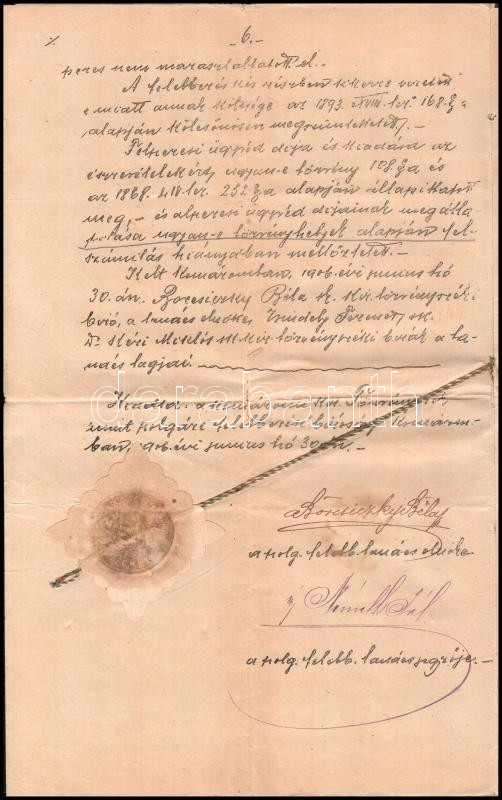 -6.-
peres nem marasztaltatott el.-
A felebbezés kis részben sikerre vezetvén
emiatt annak költsége az 1893. XVIII. tcz. 168.§-a
alapján kölcsönösen megszüntettetett.-
Felperesi ügyvéd dija és kiadása az
észrevételekért, ugyan-e törvény 108.§a és
az 1868. LIV. tcz. 252 §a alapján állapittatott
meg,- és alperesi ügyvéd dijainak megálla-
pitása ugyan-e törvényhelyek alapján fel-
számitás hiányában mellőztetett.-
Kelt Komáromban, 1906. évi junius hó
30.án. Borcsiczky Béla sk. kir. törvényszéki
biró, a tanács elnöke, Ferencz sk.
Dr. Kéri Miklós sk. kir. törvényszéki birák a ta-
nács tagjai.
Kiadta: a komáromi kir. Törvényszék,
mint polgári felebbezési biróság Komárom-
ban, 1906. évi junius hó 30án.-
Borcsiczky Béla
a polg. felebb. tanács elnöke
ifj Németh Pál
a polg. felebb. tanács jegyzője.-
darabanth